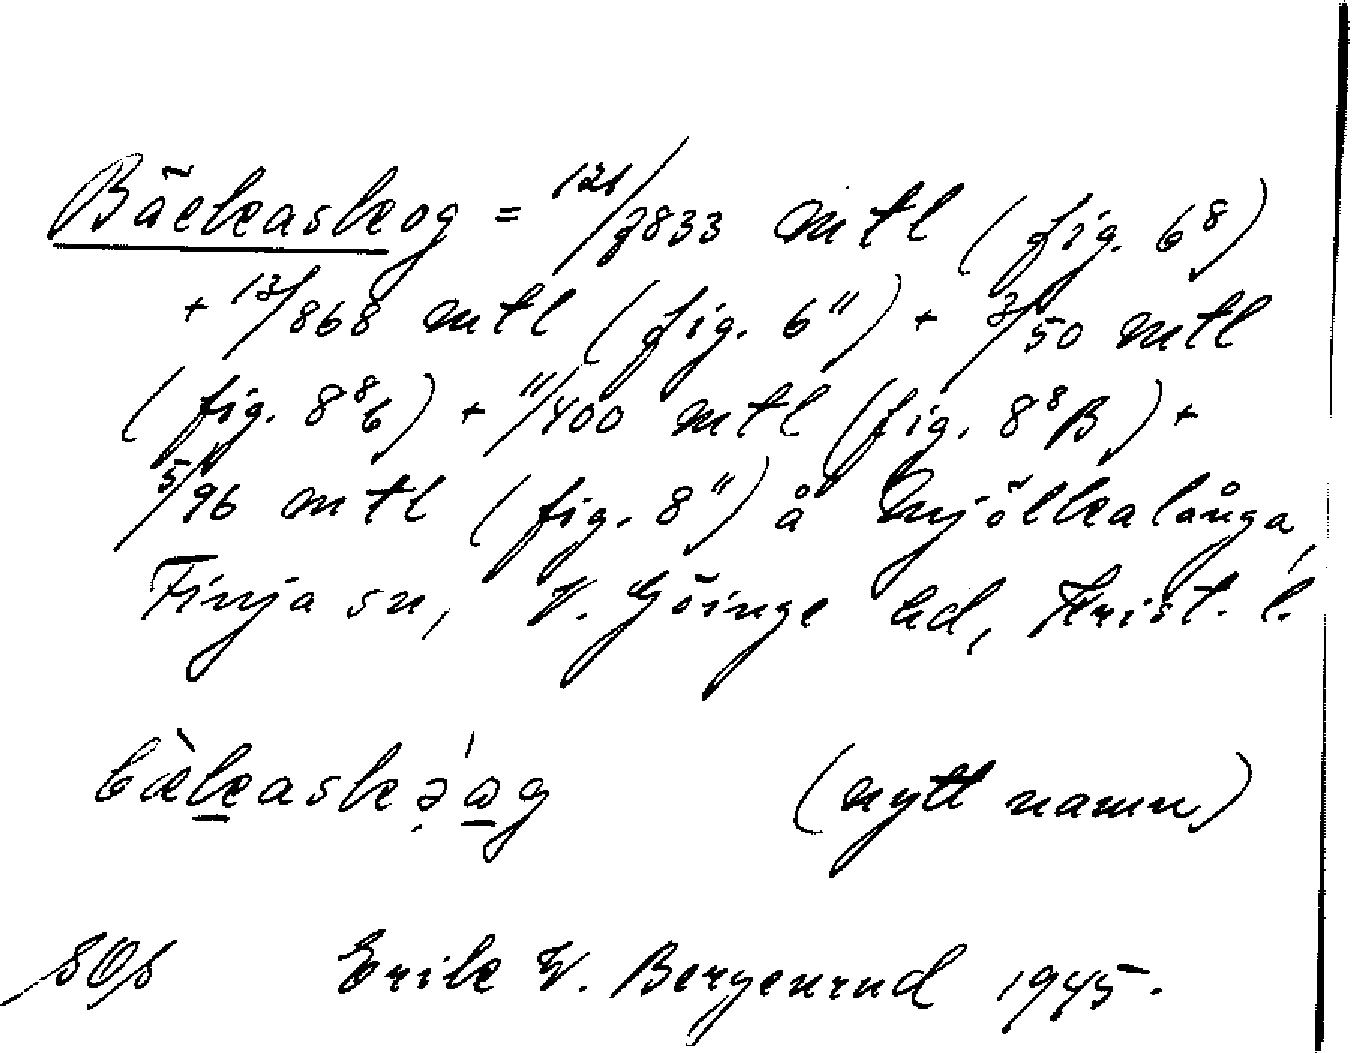 Bäckaskog = 121/7833 mtl (fig. 6⁸)
+ 13/868 mtl (fig. 6¹¹) + 3/50 mtl
(fig. 8⁸b) + 11/400 mtl (fig. 8⁸B) +
5/96 mtl (fig. 8¹¹) å Mjölkalånga,
Finja sn, V. Göinge hd, Krist. l.
(nytt namn)
Erik W. Bergenrud 1945.